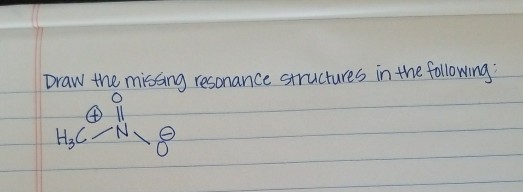 Draw the missing resonance structures in the following:
O
⊕ ||
H₃C–N\O ⊖